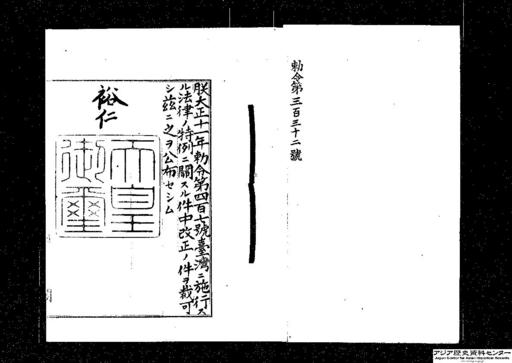 勅令第三百三十二號
朕大正十一年勅令第四百七號臺灣ニ施行ス
ル法律ノ特例ニ關スル件中改正ノ件ヲ裁可
シ茲ニ之ヲ公布セシム
裕仁
天皇
御璽
アジア歴史資料センター
Japan Center for Asian Historical Records